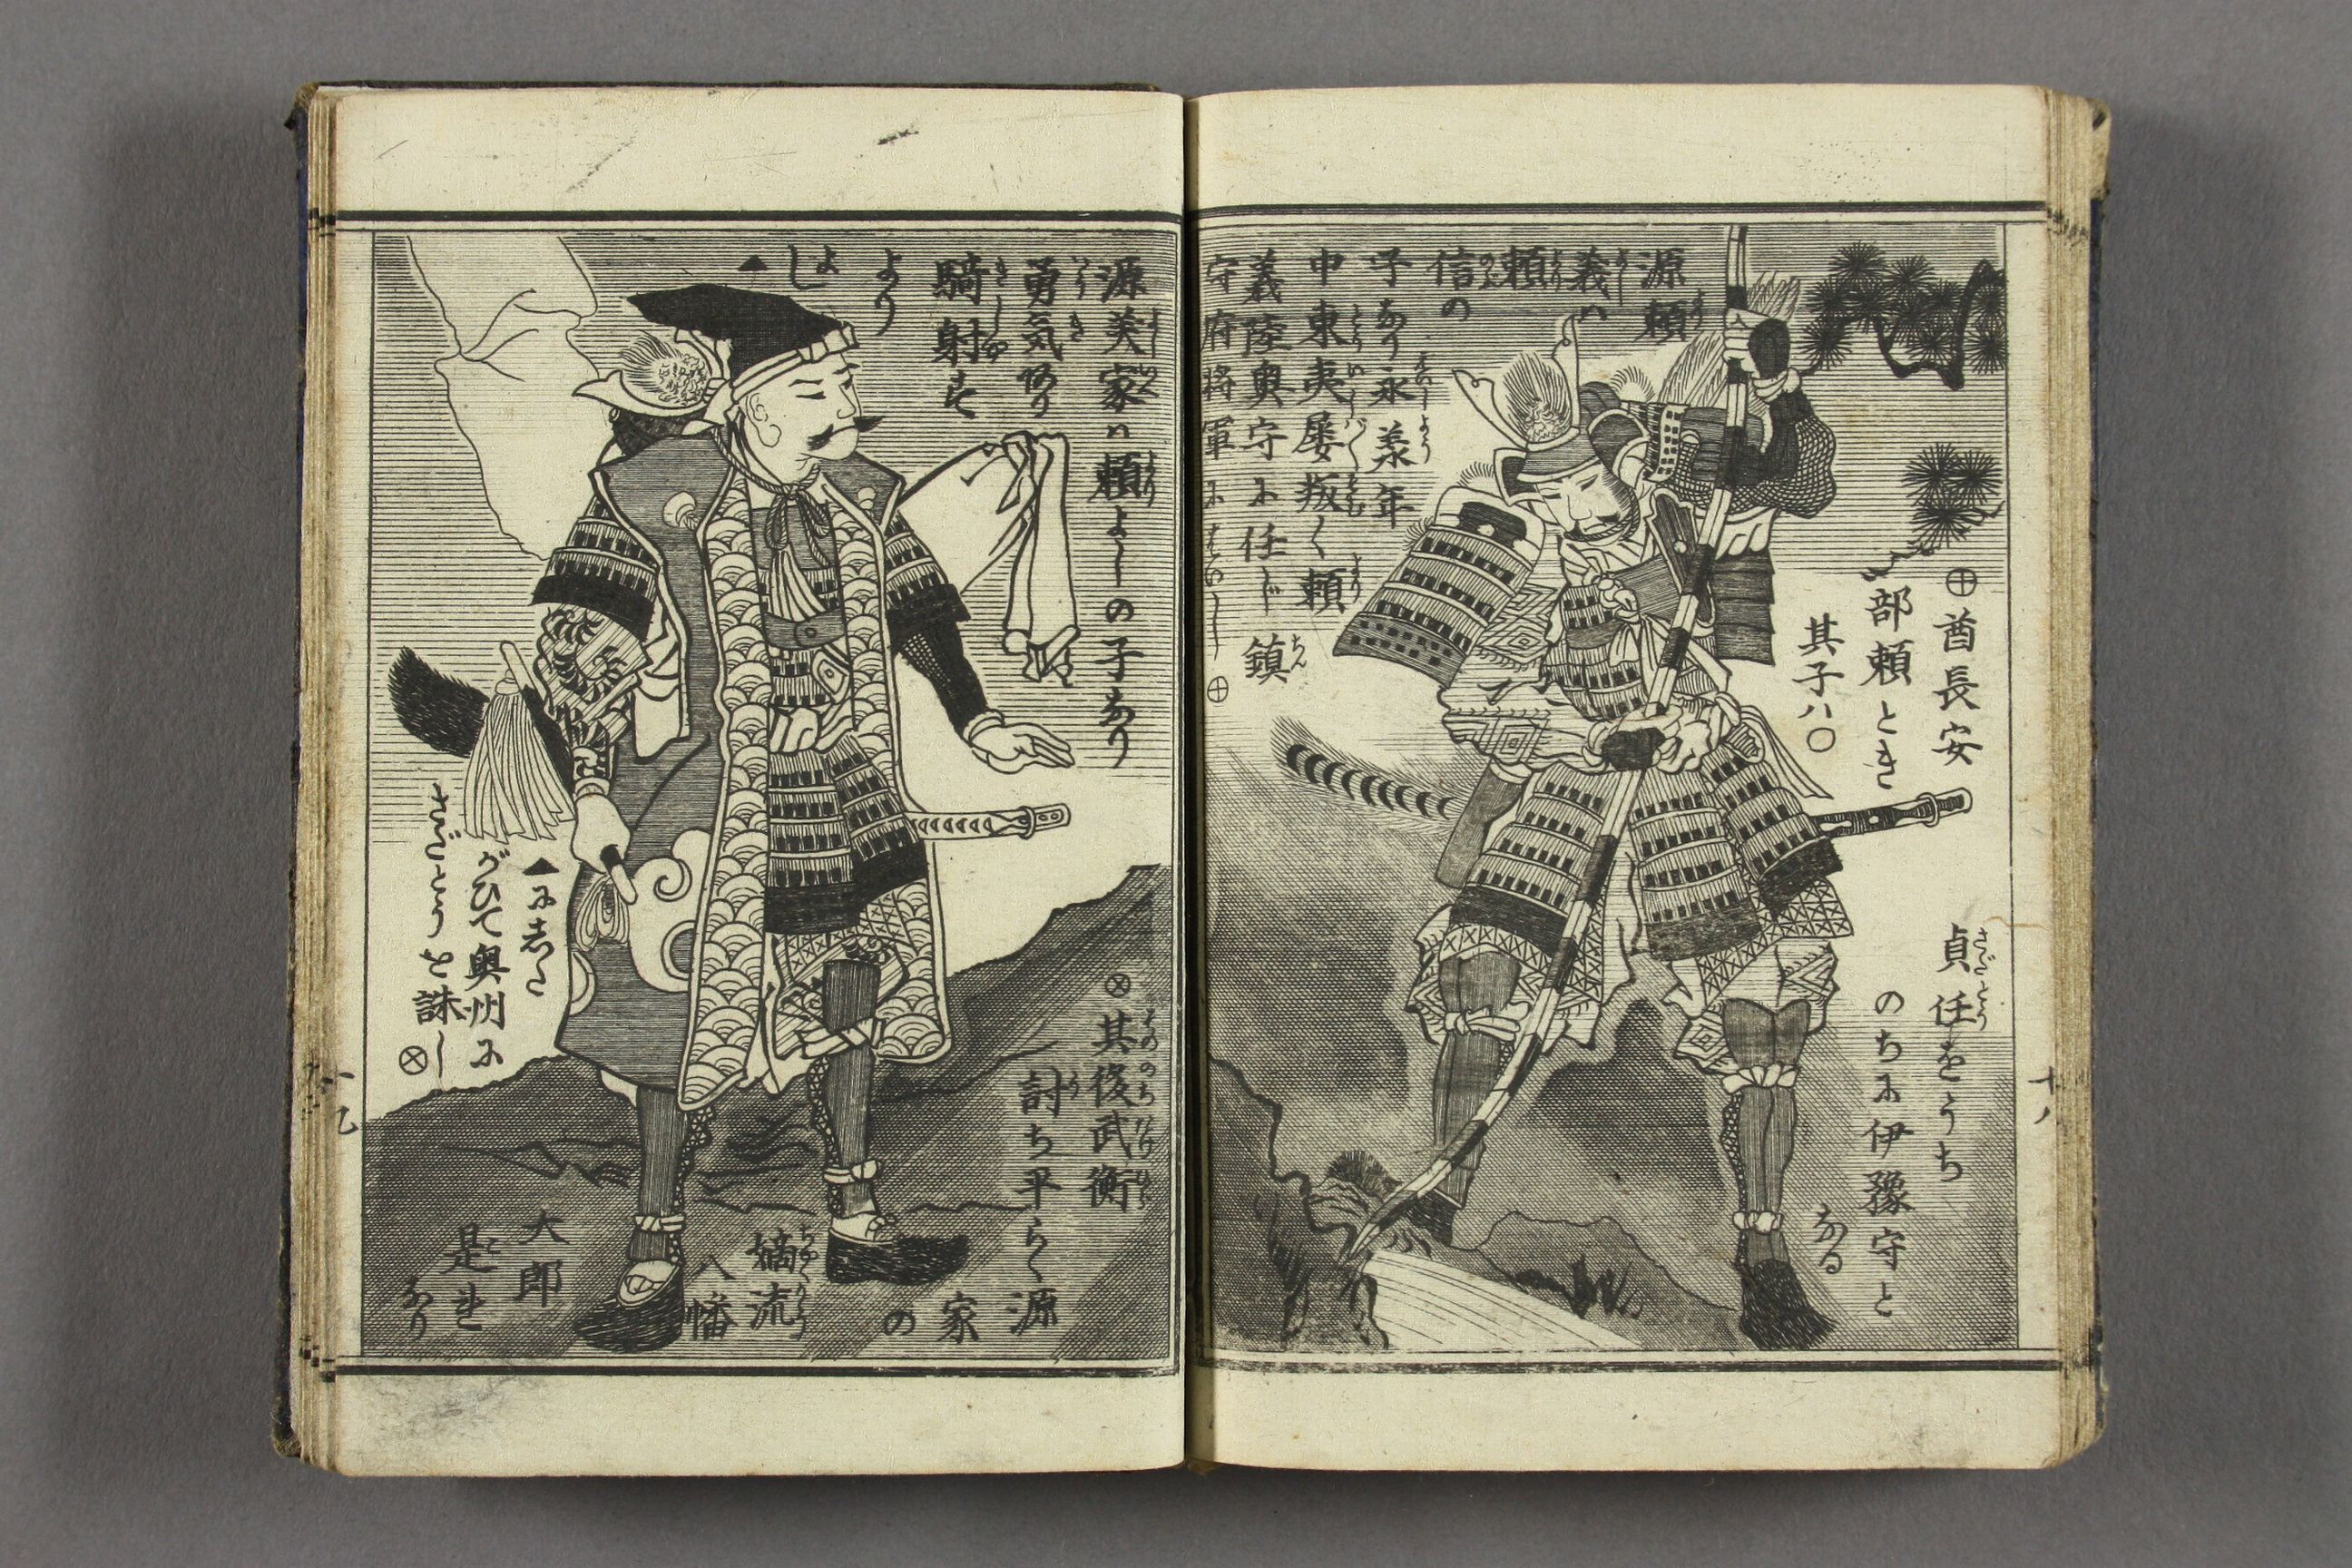 源頼
義ハ
頼
信の
子なり永義年
中東夷屡叛く頼
義陸奥守に任じ鎮
守府将軍に
⊕
⊕酋長安
部頼とき
其子ハ〇
貞任をうち
のちに伊豫守と
なる
十八
源義家ハ頼よしの子なり
勇気あり
騎射を
より
よし
▲
▲にした
がひて奥州に
さだとうを誅し
⊗
⊗其後武衡
討ち平らく源
家
の
嫡流
八幡
太郎
是れ
なり
十九